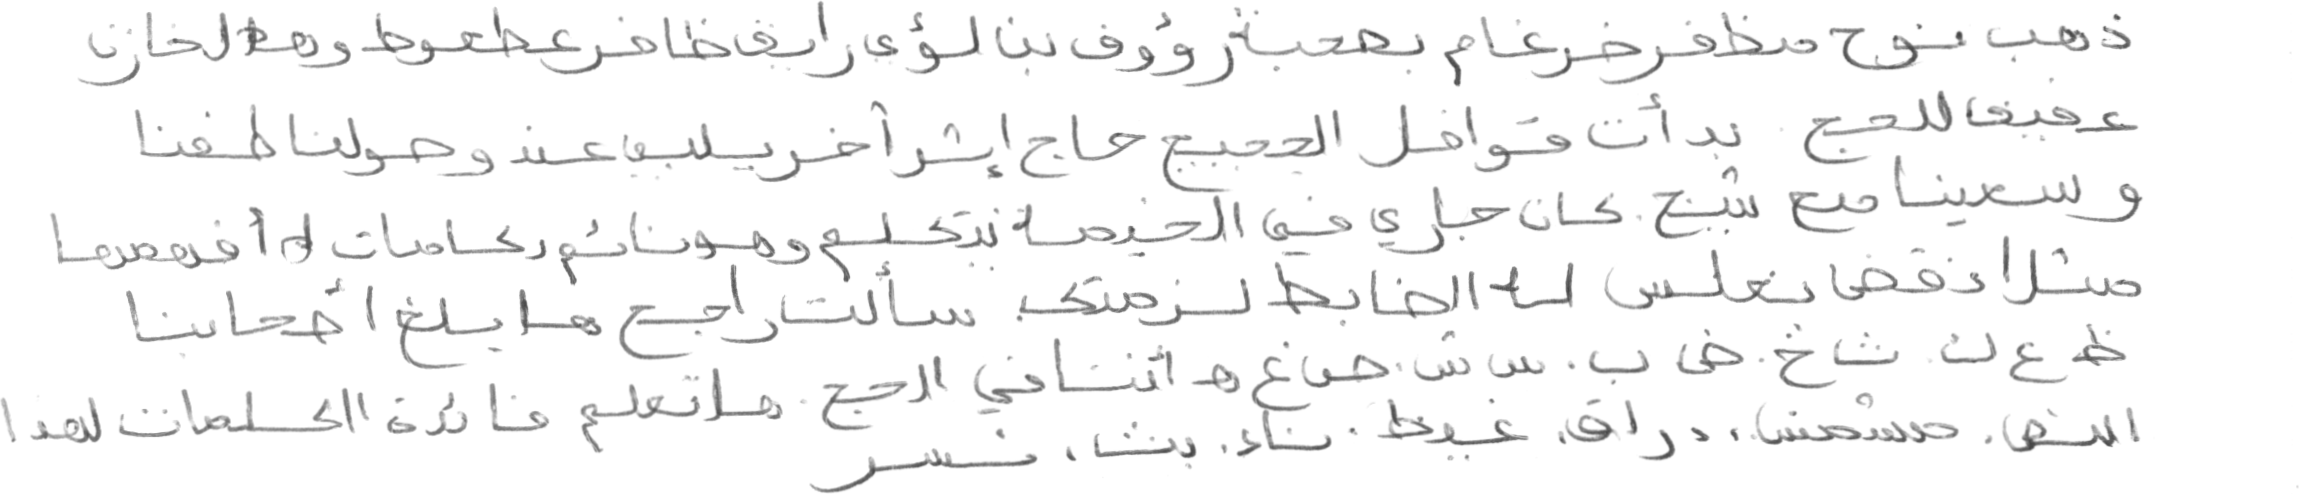 ذهب نوح مظفر ضرغام بصحبة رؤوف بن لؤي راىق ظافر عطعوط وهلال حازن
عفيفا للحج . بدأت قوافل الحجيج حاج إثر آخر يلبي عند وصولنا طفنا
وسعينا مع شيخ . كان جاري في الخيمة يتكلم وهو نائم بكلمات لا أفهمها
مثلا نقض نغلس له الضابط لزمتك . سألت راجح هل يبلغ أصحابنا
ظ ع ث . ث خ . ض ب . س ش . ص غ ه أثنا في الحج . هل تعلم فائدة الكلمات لهذا
النص . مشمش ، دراق . غيظ . ناء . بث ، نسر